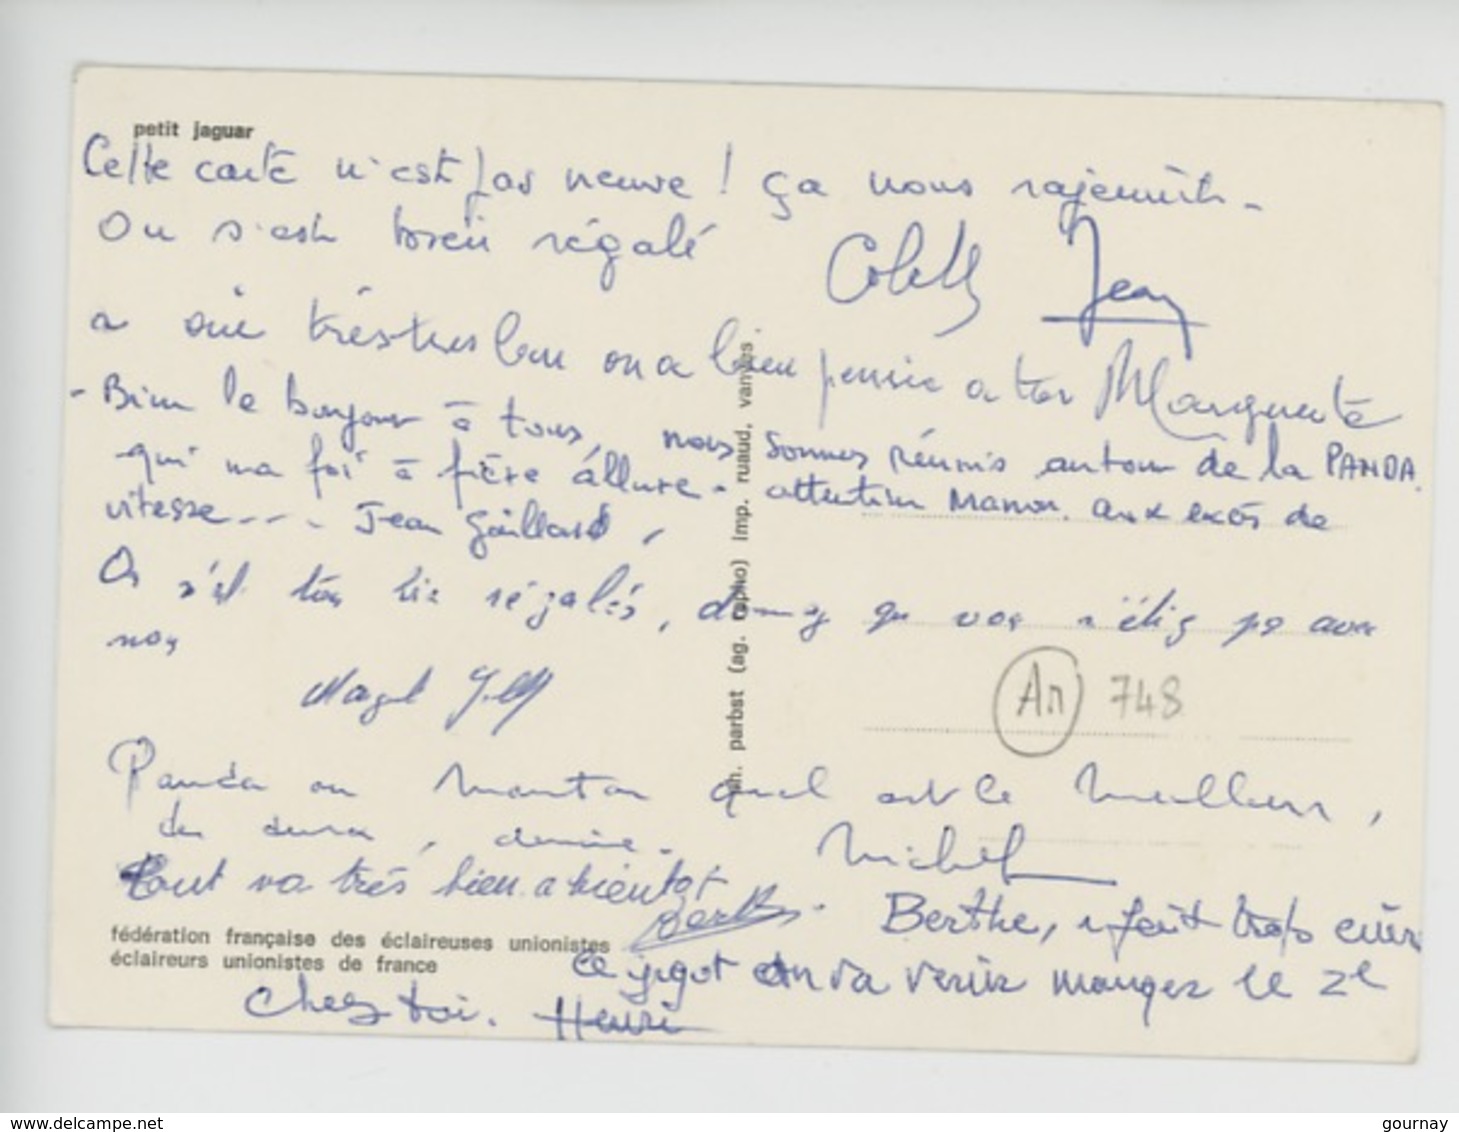 petit jaguar
Cette carte n'est pas neuve ! ça nous rajeunit -
On s'est bien régalé
Colette Jean
a oui très très bon on a bien pensé a toi Marguerite
- Bien le bonjour à tous, nous sommes réunis autour de la PANDA.
qui ma foi à fière állure - attention Manon. aux excès de
vitesse - - - Jean Gaillard,
On s'est très bien régalés, dommage que vous n'étiez pas avec
nous
An 748
Panda ou Manta quel est le meilleur,
Michel
tout va très bien a bientot
Berthe, fait trop cuire
fédération française des éclaireuses unionistes
éclaireurs unionistes de france
ce gigot on va venir manger le 2e
chez toi. Henri
ph. parbst (ag. rapho) imp. ruaud, vanves
www.delcampe.net
gournay